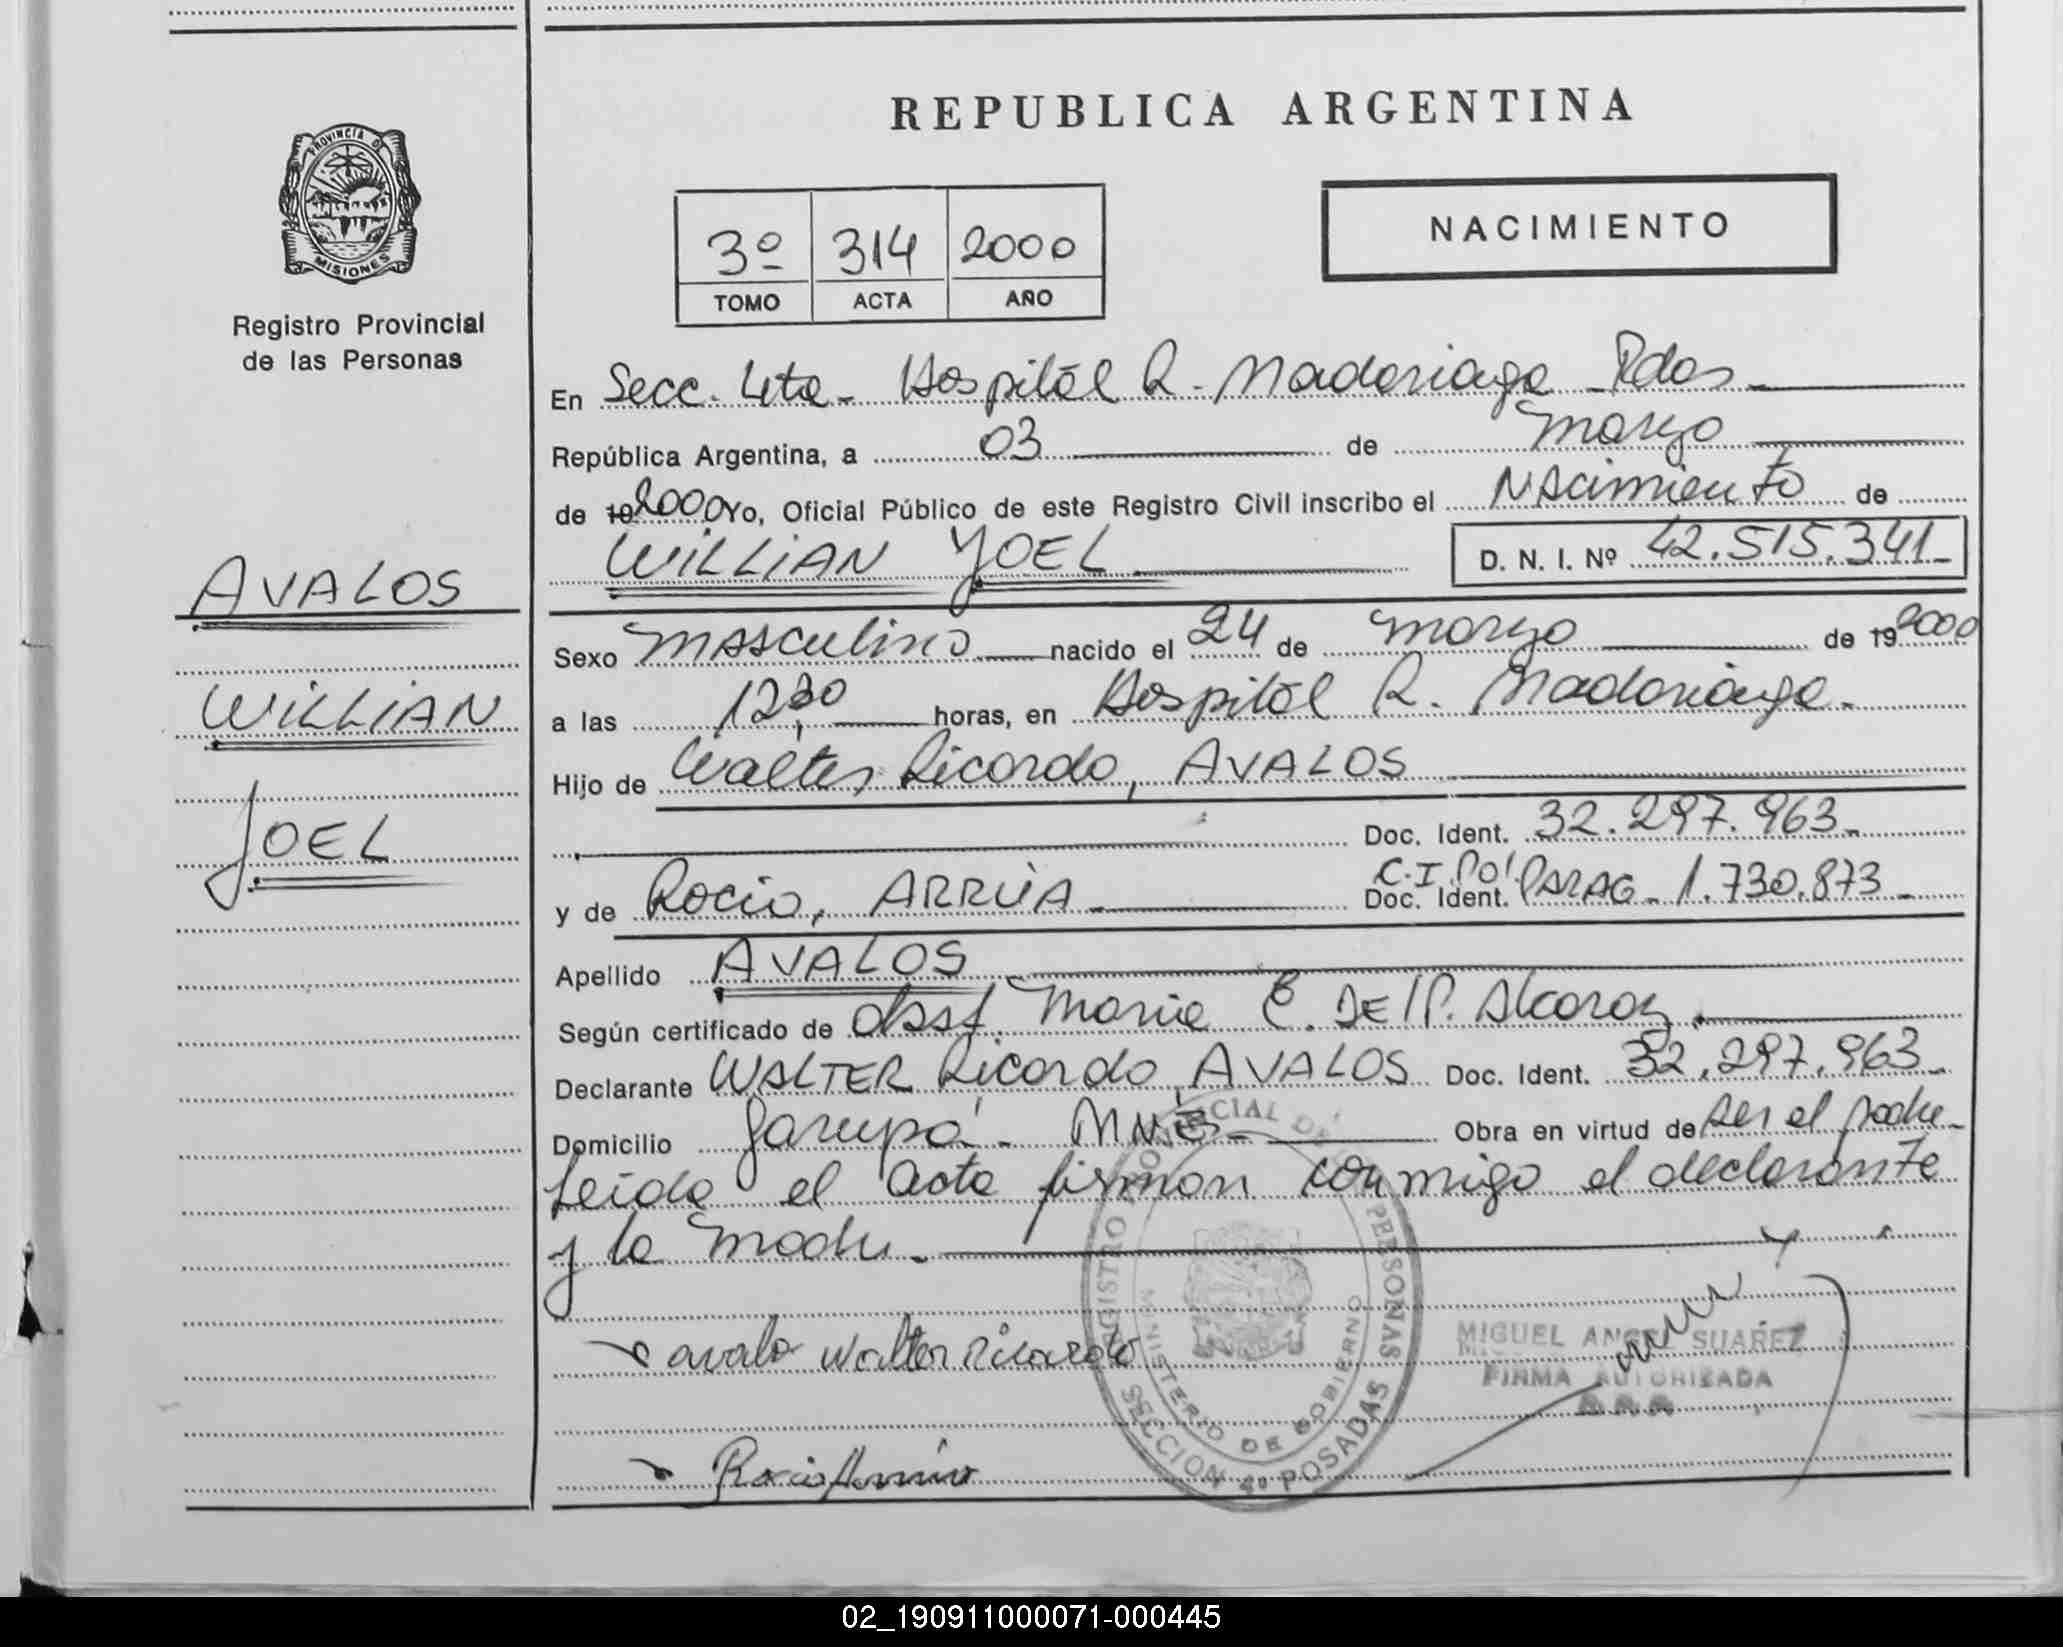 REPUBLICA ARGENTINA
PROVINCIA DE MISIONES
Registro Provincial
de las Personas
3º 314 2000
TOMO ACTA AÑO
NACIMIENTO
En Secc. 4ta - Hospitál R. Madariaga Pdas
República Argentina, a 03 de Marzo
de 19 2000 Yo, Oficial Público de este Registro Civil inscribo el NAcimiento de
WILLIAN JOEL D. N. I. Nº 42.515.341
AVALOS
WILLIAN
JOEL
Sexo MASculino nacido el 24 de Marzo de 19 2000
a las 12,30 horas, en Hospitál R. Madariaga.
Hijo de Walter Ricardo, AVALOS
Doc. Ident. 32.297.963
C.I. Pol.
y de Rocio, ARRÚA Doc. Ident. PARAG - 1.730.873
Apellido AVALOS
Según certificado de Obst. Maria E. DEl P. Alcaraz
Declarante WALTER Ricardo AVALOS Doc. Ident. 32.297.963
Domicilio Garupá - Mnes Obra en virtud de ser el padre
Leida el acta firman conmigo el declarante
y la madre
avalo Walter Ricardo
Rocio
REGISTRO PROVINCIAL DE PERSONAS
MINISTERIO DE GOBIERNO
SECCION 4º POSADAS
MIGUEL ANGEL SUAREZ
FIRMA AUTORIZADA
02_190911000071-000445